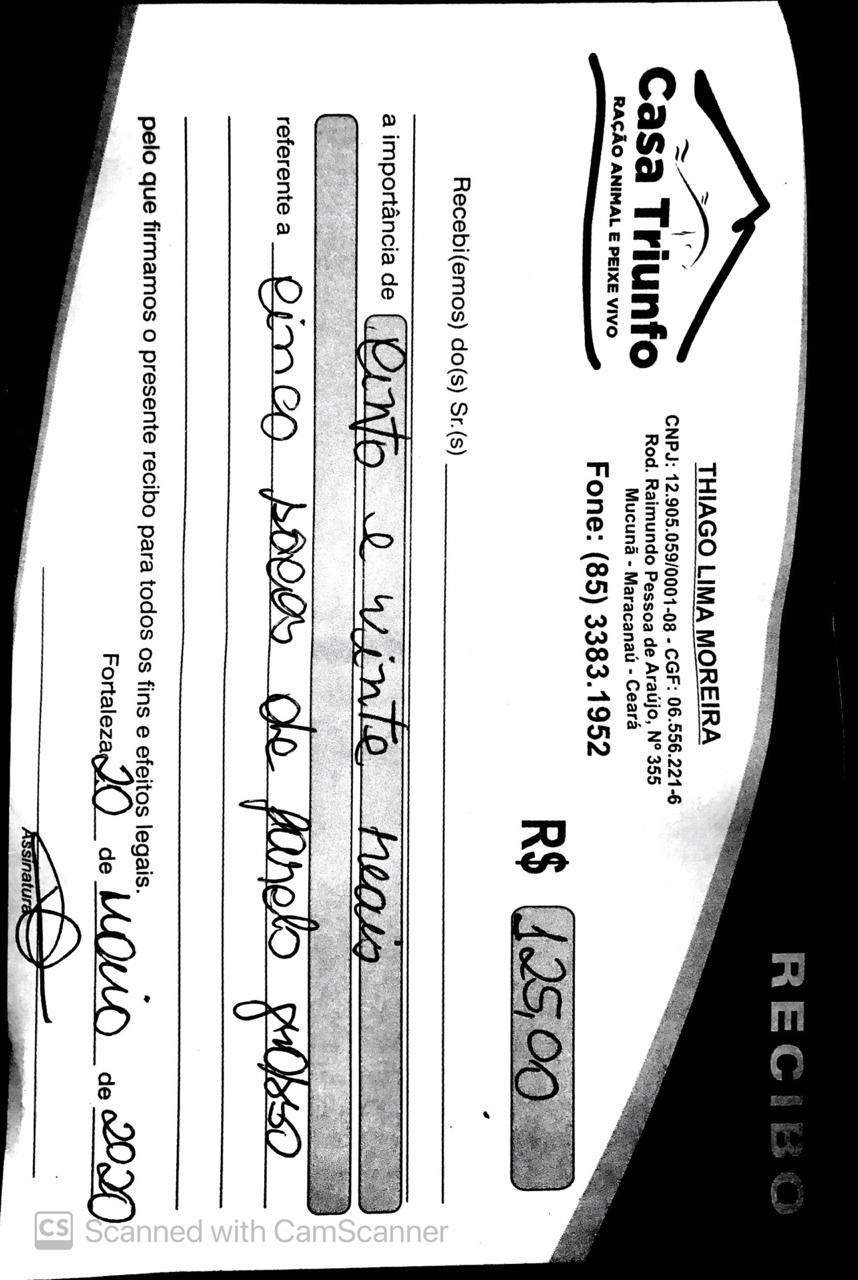 RECIBO
Casa Triunfo
RAÇÃO ANIMAL E PEIXE VIVO
THIAGO LIMA MOREIRA
CNPJ: 12.905.059/0001-08 - CGF: 06.556.221-6
Rod. Raimundo Pessoa de Araújo, Nº 355
Mucunã - Maracanaú - Ceará
Fone: (85) 3383.1952
R$ 125,00
Recebi(emos) do(s) Sr.(s)
a importância de Cinto e vinte reais
referente a cinco sacas de farelo grosso
pelo que firmamos o presente recibo para todos os fins e efeitos legais.
Fortaleza 20 de maio de 2020
Assinatura
CS Scanned with CamScanner